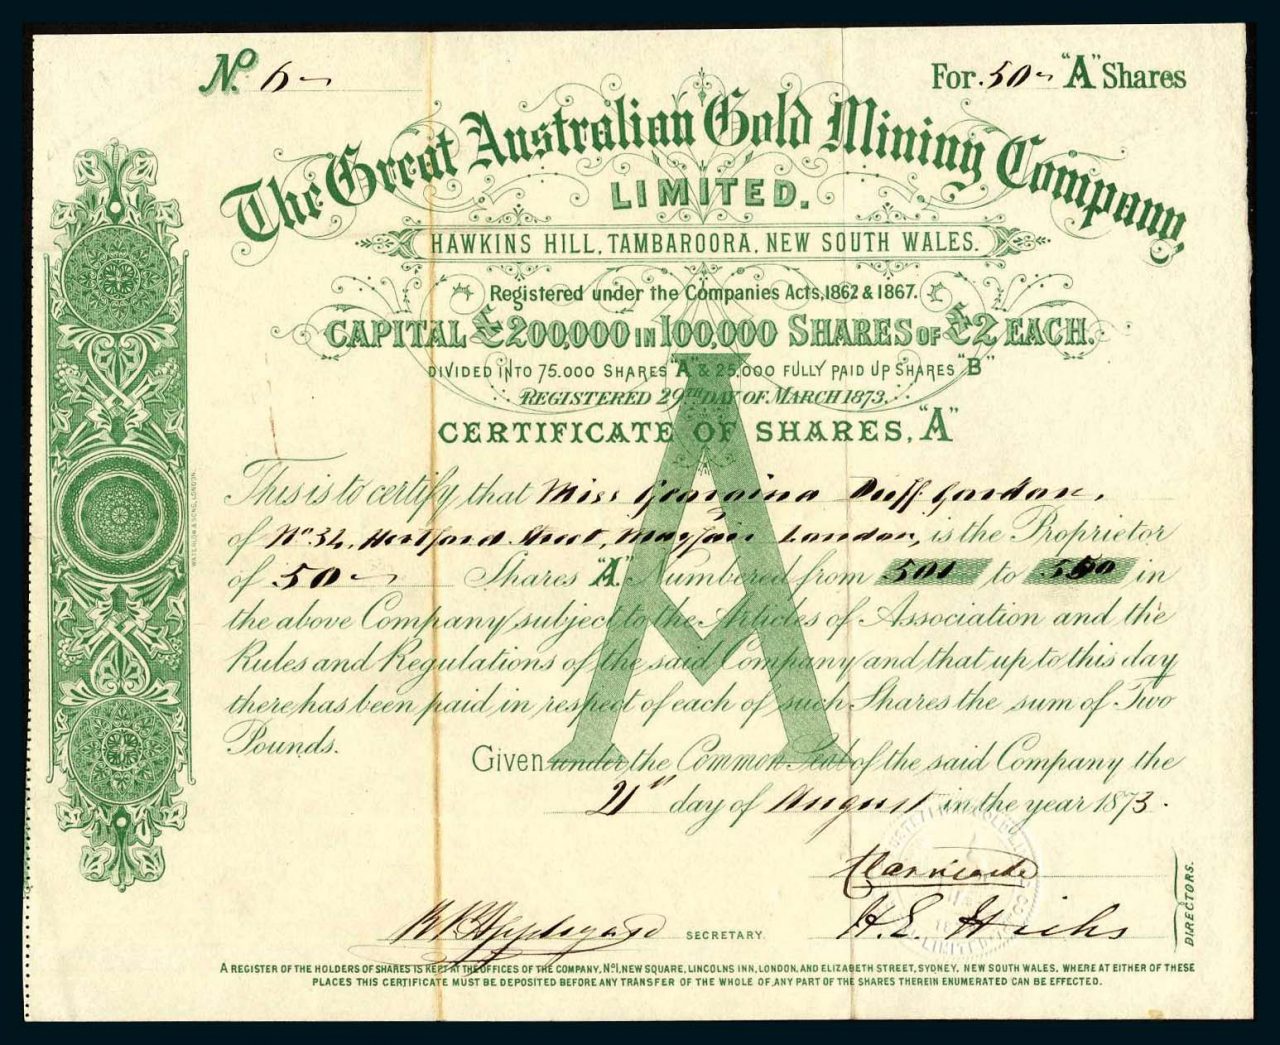 No. 6
For 50 "A" Shares
The Great Australian Gold Mining Company,
LIMITED.
HAWKINS HILL, TAMBAROORA, NEW SOUTH WALES.
Registered under the Companies Acts, 1862 & 1867.
CAPITAL £200,000 IN 100,000 SHARES OF £2 EACH.
DIVIDED INTO 75.000 SHARES "A" & 25,000 FULLY PAID UP SHARES "B"
REGISTERED 29TH DAY OF MARCH 1873.
CERTIFICATE OF SHARES, "A"
A
This is to certify that Miss Georgina Duff Gordon,
of No 34, Hertford Street, Mayfair London, is the Proprietor
of 50 Shares "A" Numbered from 501 to 550 in
the above Company subject to the Articles of Association and the
Rules and Regulations of the said Company and that up to this day
there has been paid in respect of each of such Shares the sum of Two
Pounds.
Given under the Common Seal of the said Company the
21st day of August in the year 1873.
H. E. Hicks
DIRECTORS.
Appleyard SECRETARY.
A REGISTER OF THE HOLDERS OF SHARES IS KEPT AT THE OFFICES OF THE COMPANY, No 1, NEW SQUARE, LINCOLNS INN, LONDON, AND ELIZABETH STREET, SYDNEY, NEW SOUTH WALES, WHERE AT EITHER OF THESE
PLACES THIS CERTIFICATE MUST BE DEPOSITED BEFORE ANY TRANSFER OF THE WHOLE OF, ANY PART OF THE SHARES THEREIN ENUMERATED CAN BE EFFECTED.
WATERLOW & SONS, LONDON.